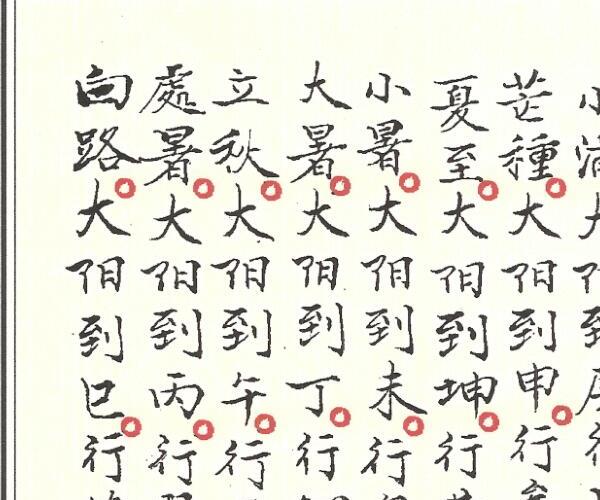 小滿大阳到
芒種大阳到申行
夏至大阳到坤行
小暑大阳到未行
大暑大阳到丁行
立秋大阳到午行
處暑大阳到丙行
白路大阳到巳行